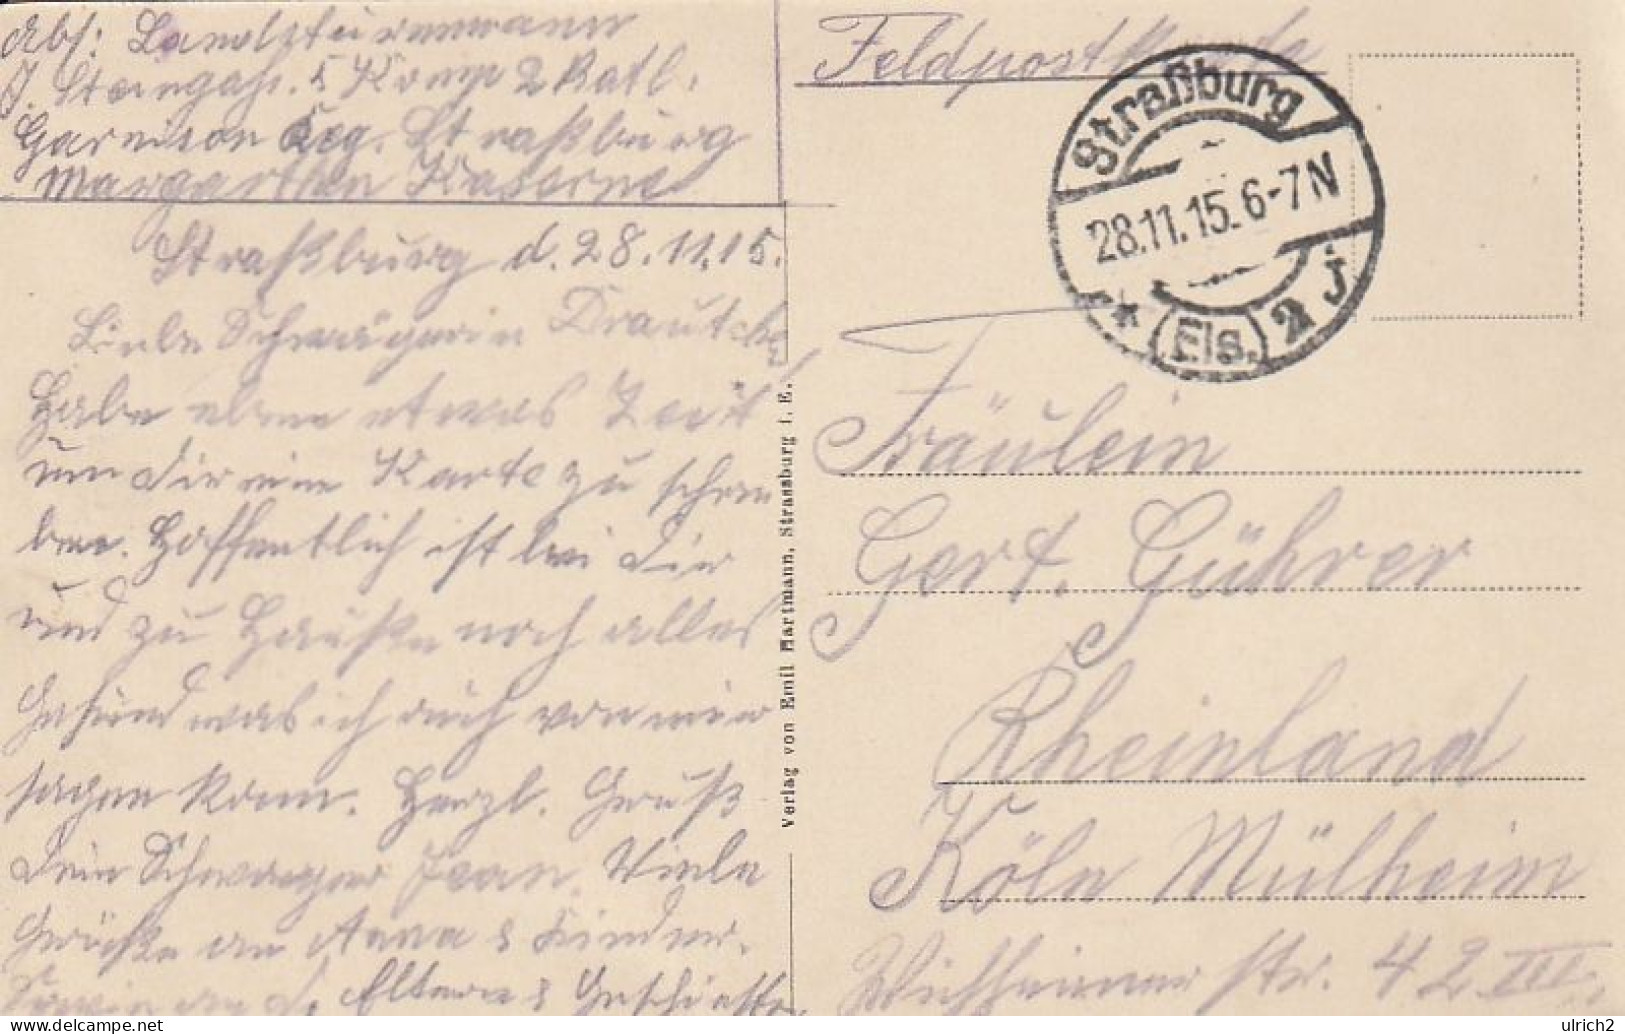 Abs: Landsturmmann
J. Steingaß. 5 Komp 2 Batl.
Garnison Reg. Straßburg
Margarethen Kaserne
Straßburg d. 28.11.15.
Liebe Schwägerin
Habe eben etwas Zeit
um dir eine Karte zu schrei
ben. Hoffentlich ist bei Dir
und zu Hauße noch alles
Gesund was ich auch von mir
sagen kann. Herzl. Gruß
Dein Schwager Jean. Viele
Grüße an Anna & Kinder.
Sowie an d. Eltern & Geschwister
Verlag von Emil Hartmann, Strassburg i. E.
Feldpostkarte
Straßburg
28.11.15. 6-7N
* (Els.) 2 j
Fräulein
Gert. Gührer
Rheinland
Köln Mülheim
str. 42 III
ulrich2